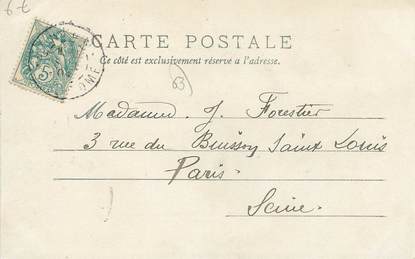 6 €
CARTE POSTALE
Ce côté est exclusivement réservé à l'adresse.
63
Madame J. Forestier
3 rue du Buisson Saint Louis
Paris.
Seine.